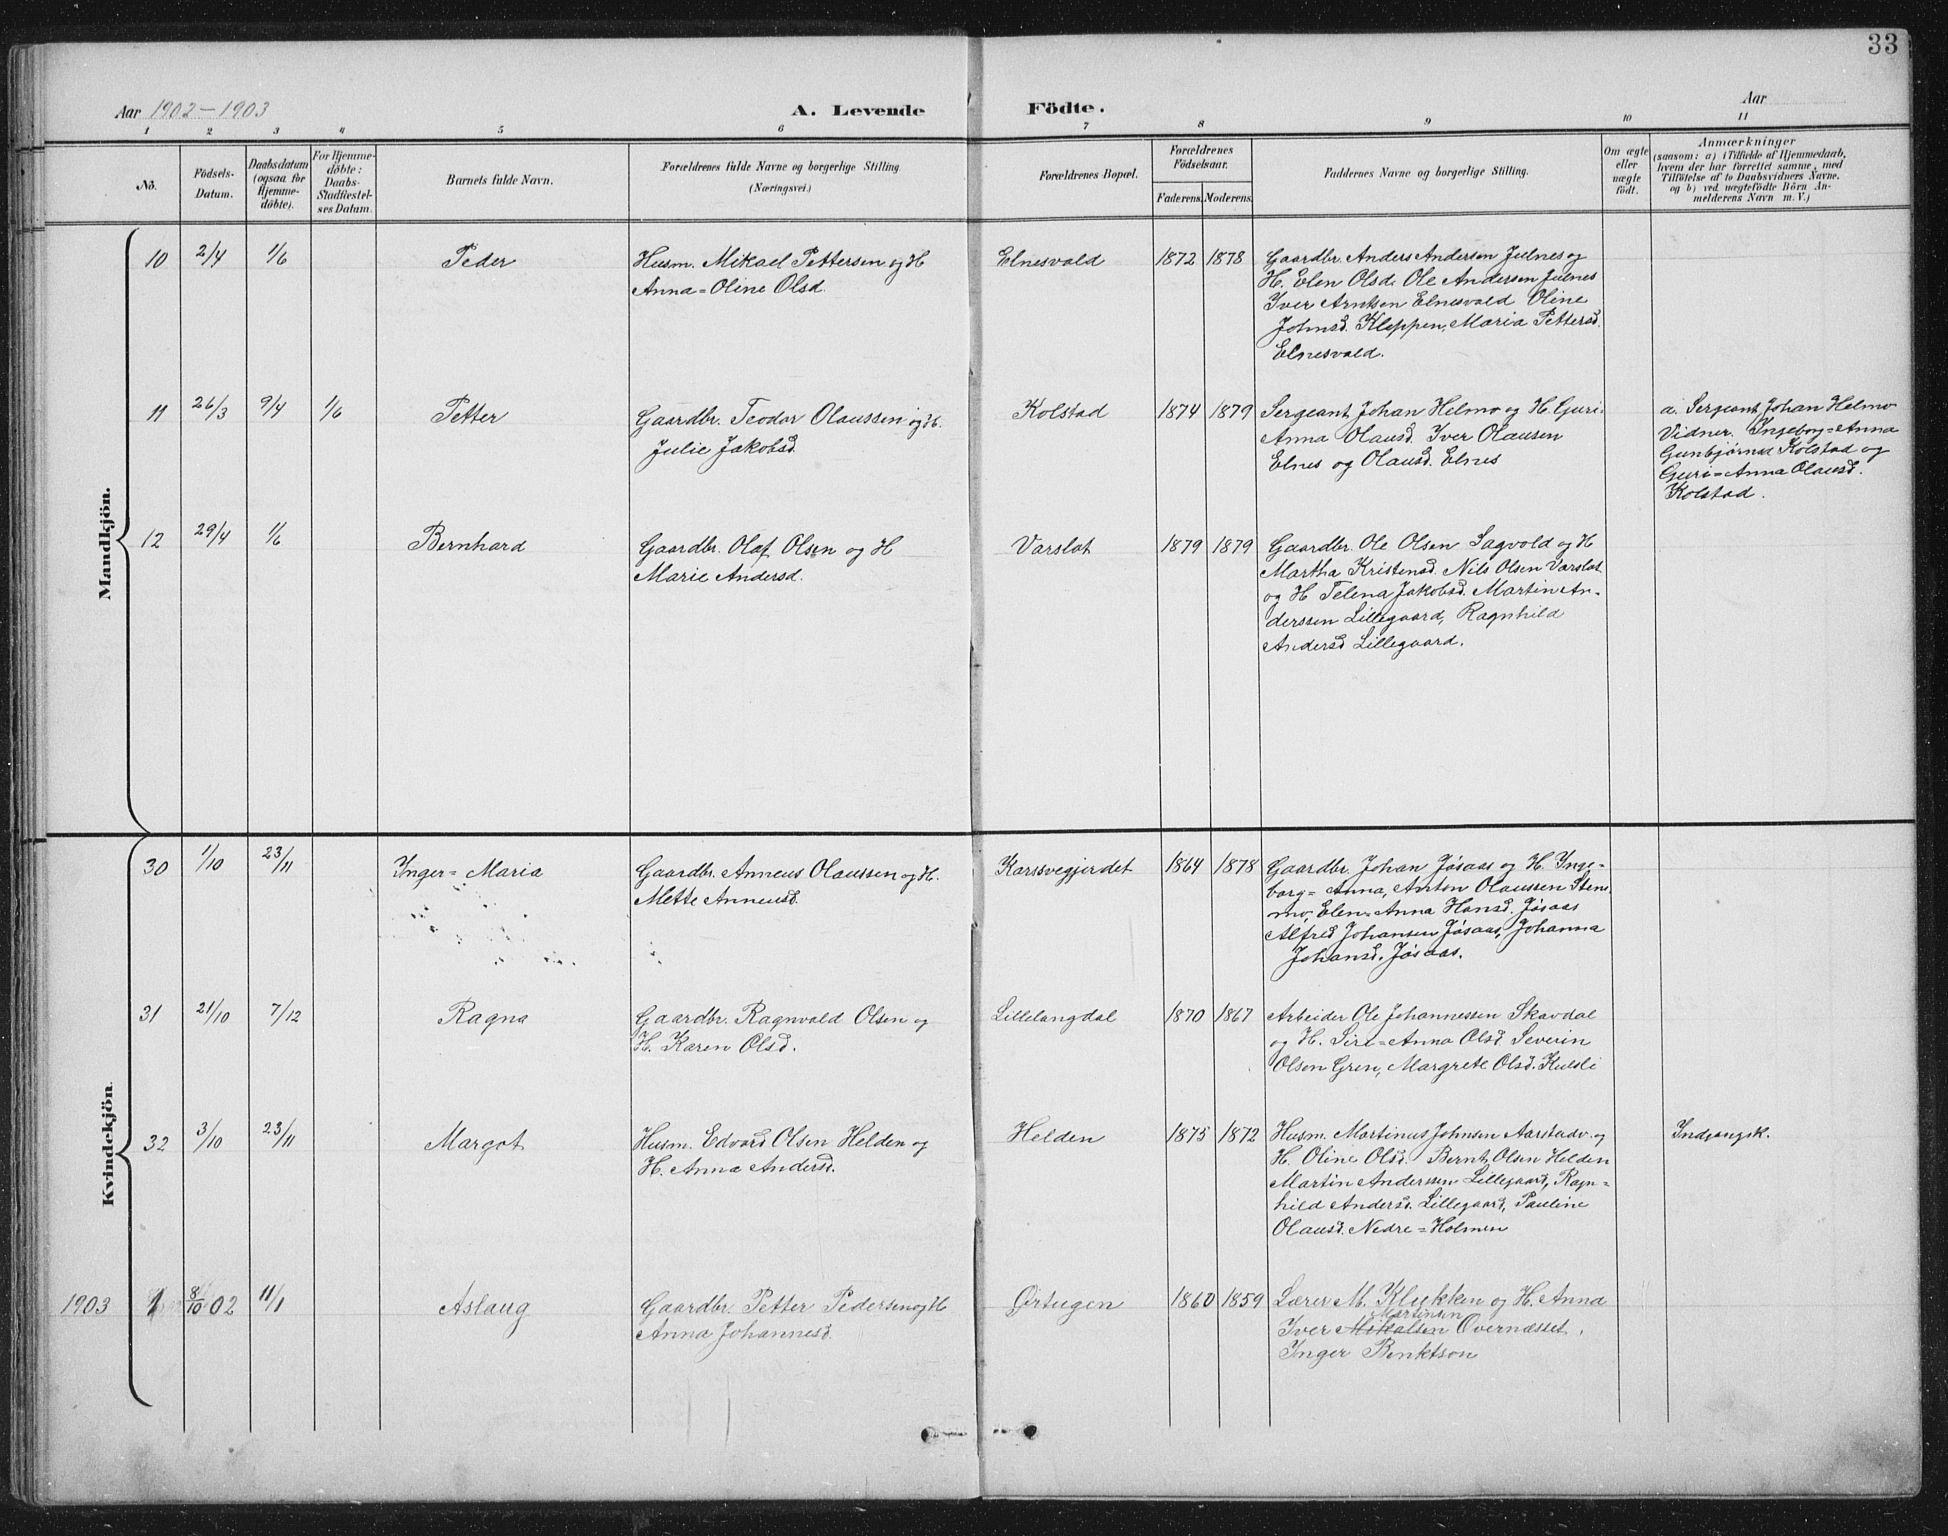 33
Aar 1902-1903
A. Levende Födte.
Aar
1 2 3 4 5 6 7 8 9 10 11
No.
Födsels-
Datum.
Daabsdatum
(ogsaa for
Hjemme-
döbte).
For Hjemme-
döbte:
Daabs-
Stadfæstel-
ses Datum.
Barnets fulde Navn.
Forældrenes fulde Navne og borgerlige Stilling.
(Næringsvei.)
Forældrenes Bopæl.
Forældrenes
Födselsaar.
Faderens. Moderens.
Faddernes Navne og borgerlige Stilling.
Om ægte
eller
uægte
födt.
Anmærkninger
(saasom: a) i Tilfælde af Hjemmedaab,
hvem der har forrettet samme, med
Tilföielse af to Daabsvidners Navne.
og b) ved uægtefödte Börn An-
melderens Navn m. V.)
Mandkjön.
10 2/4 1/6 Peder
Husm. Mikael Pettersen og H
Anna=Oline Olsd.
Elnesvold 1872 1878
Gaardbr. Anders Andersen Julnes og
H. Elen Olsd. Ole Andersen Julnes
Iver Arntsen Elnesvold Oline
Johnsd. Kleppen, Maria Pettersd.
Elnesvold.
11 26/3 9/4 1/6 Petter
Gaardbr. Teodor Olaussen og H.
Julie Jakobsd.
Kolstad 1874 1879
Sergeant Johan Helmo og H. Guri-
Anna Olausd. Iver Olausen
Elnes og Olausd. Elnes
a. Sergeant Johan Helmo
Vidner. Ingeborg=Anna
Gunbjørnsd Kolstad og
Guri=Anna Olausd.
Kolstad.
12 29/4 1/6 Bernhard
Gaardbr. Olaf Olsen og H
Marie Andersd.
Varslot 1879 1879
Gaardbr. Ole Olsen Sagvold og H
Martha Kristensd. Nils Olsen Varslot
og H Telena Jakobsd. Martin An-
derssen Lillegaard, Ragnhild
Andersd Lillegaard.
Kvindekjön.
30 1/10 23/11 Inger=Maria
Gaardbr. Anneus Olaussen og H.
Mette Anneusd.
Karssvegjerdet 1864 1878
Gaardbr. Johan Jøsaas og H. Inge-
borg=Anna, Anton Olaussen Sten-
mo, Elen=Anna Hansd. Jøsaas
Alfred Johansen Jøsaas, Johanna
Johansd. Jøsaas.
31 21/10 7/12 Ragna
Gaardbr. Ragnvald Olsen og
H. Karen Olsd.
Lillelangdal 1870 1867
Arbeider Ole Johannessen Skavdal
og H. Siri=Anna Olsd Severin
Olsen Gren, Margrete Olsd. Kulsli
32 3/10 23/11 Margot
Husm. Edvard Olsen Helden og
H. Anna Andersd.
Helden 1875 1872
Husm. Martinus Johnsen Aarstadv. og
H. Oline Olsd. Bernt Olsen Helden
Martin Anderssen Lillegaard, Ragn=
hild Andersd. Lillegaard, Pauline
Olausd. Nedre=Holmen
Indgangsk.
1903 1 8/10 02 11/1 Aslaug
Gaardbr. Petter Pedersen og H
Anna Johannesd.
Ørtugen 1860 1859
Lærer M. Klukken og H. Anna
Martinsen
Iver Mikalsen Overnæsset,
Inger Benktson